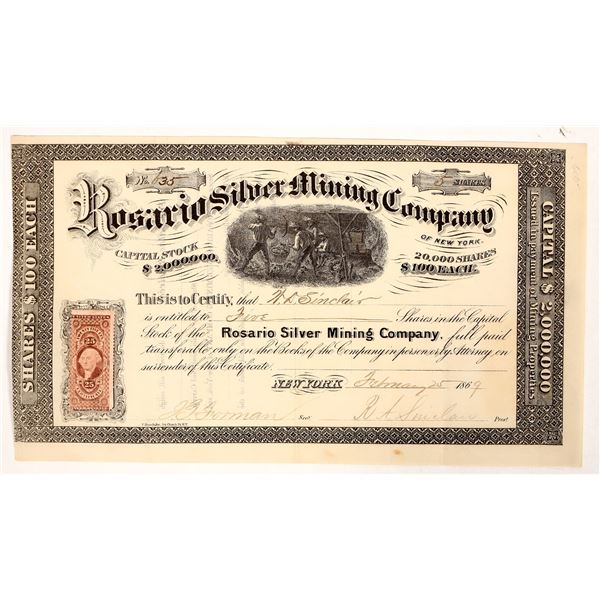 No. 35
5 SHARES
Rosario Silver Mining Company
OF NEW YORK.
CAPITAL STOCK
$2,000,000.
20,000 SHARES
$100 EACH.
This is to Certify, that W. L. Sinclair
is entitled to Five Shares in the Capital
Stock of the Rosario Silver Mining Company, full paid
transferable only on the Books of the Company in person or by Attorney, on
surrender of this Certificate.
NEW YORK February 25 1869
Forman Sec. R A Sinclair Prest.
SHARES $100 EACH
CAPITAL $2,000,000
Issued in payment of Mining Properties
25
25